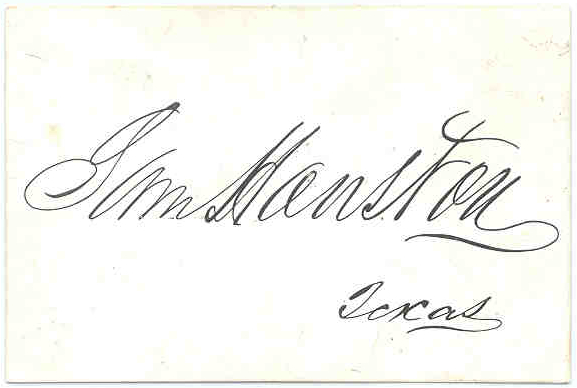 Sam Houston
Texas